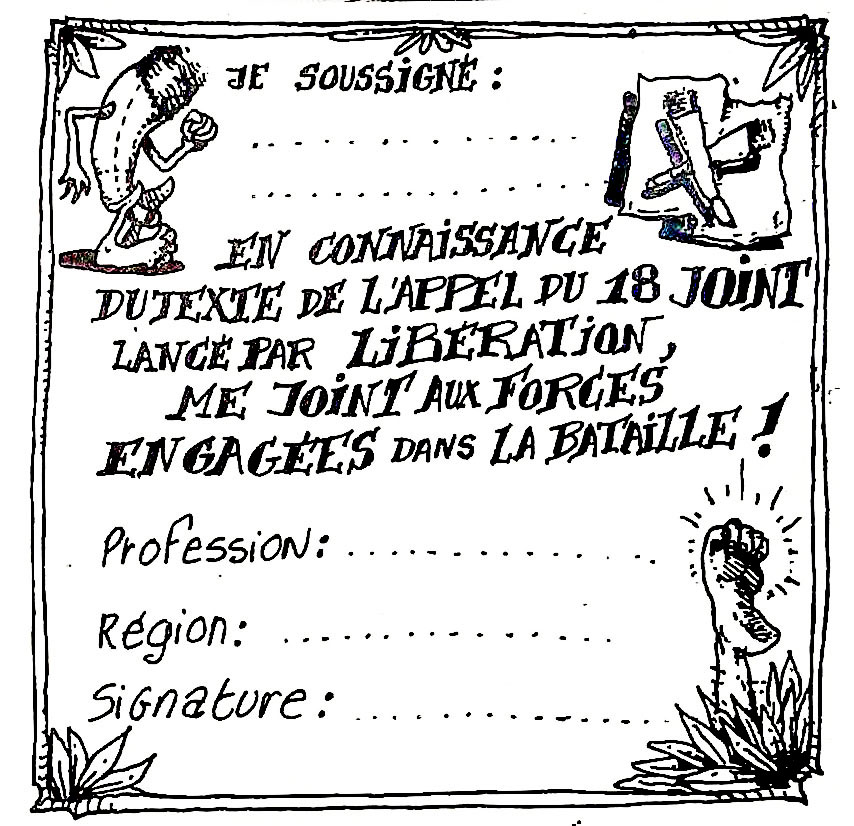 JE SOUSSIGNÉ :
EN CONNAISSANCE
DU TEXTE DE L'APPEL DU 18 JOINT
LANCÉ PAR LIBÉRATION,
ME JOINT AUX FORCES
ENGAGÉES DANS LA BATAILLE !
Profession:
Région:
Signature: